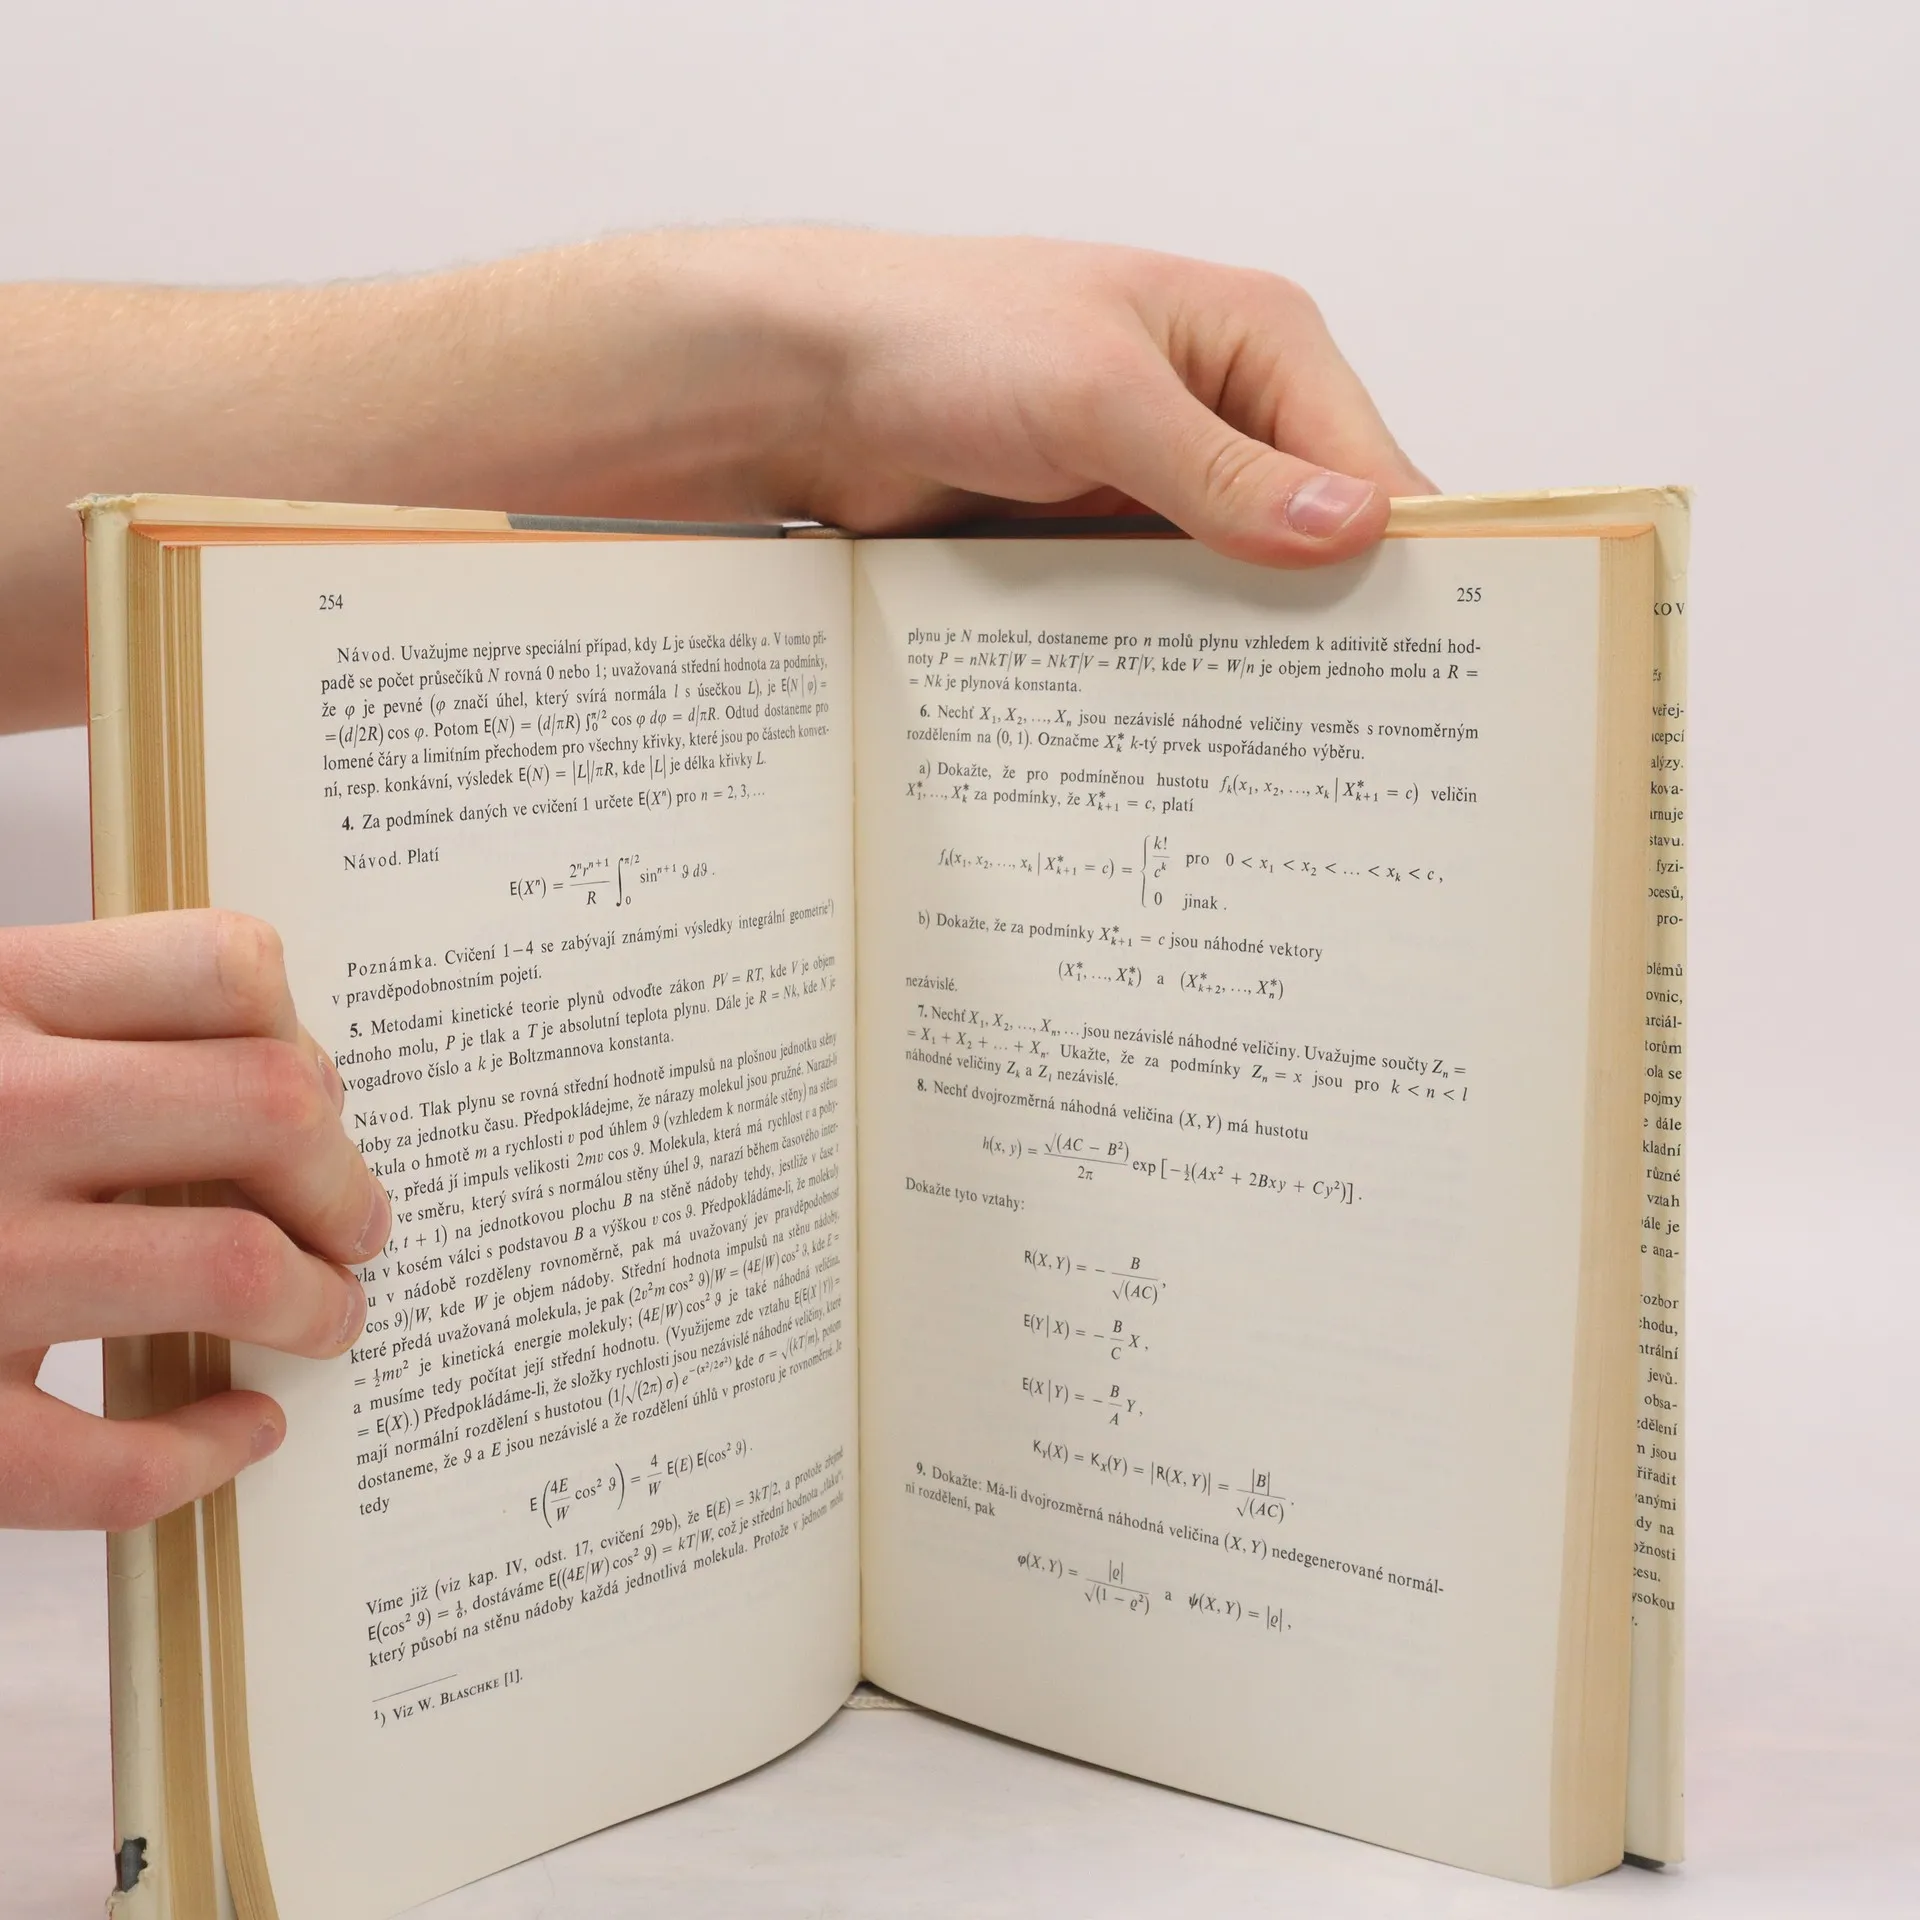 254
Návod. Uvažujme nejprve speciální případ, kdy L je úsečka délky a. V tomto pří-
padě se počet průsečíků N rovná 0 nebo 1; uvažovaná střední hodnota za podmínky,
že φ je pevné (φ značí úhel, který svírá normála l s úsečkou L), je E(N | φ) =
= (d/2R) cos φ. Potom E(N) = (d/πR) ∫₀^π/2 cos φ dφ = d/πR. Odtud dostaneme pro
lomené čáry a limitním přechodem pro všechny křivky, které jsou po částech konvex-
ní, resp. konkávní, výsledek E(N) = |L|/πR, kde |L| je délka křivky L.
4. Za podmínek daných ve cvičení 1 určete E(Xⁿ) pro n = 2, 3, ...
Návod. Platí
E(Xⁿ) = 2ⁿrⁿ⁺¹/R ∫₀^π/2 sinⁿ⁺¹ ϑ dϑ .
Poznámka. Cvičení 1–4 se zabývají známými výsledky integrální geometrie¹)
v pravděpodobnostním pojetí.
5. Metodami kinetické teorie plynů odvoďte zákon PV = RT, kde V je objem
jednoho molu, P je tlak a T je absolutní teplota plynu. Dále je R = Nk, kde N je
vogadrovo číslo a k je Boltzmannova konstanta.
Návod. Tlak plynu se rovná střední hodnotě impulsů na plošnou jednotku stěny
doby za jednotku času. Předpokládejme, že nárazy molekul jsou pružné. Narazí-li
ekula o hmotě m a rychlosti v pod úhlem ϑ (vzhledem k normále stěny) na stěnu
y, předá jí impuls velikosti 2mv cos ϑ. Molekula, která má rychlost v a pohy-
ve směru, který svírá s normálou stěny úhel ϑ, narazí během časového inter-
(t, t + 1) na jednotkovou plochu B na stěně nádoby tehdy, jestliže v čase t
yla v kosém válci s podstavou B a výškou v cos ϑ. Předpokládáme-li, že molekuly
u v nádobě rozděleny rovnoměrně, pak má uvažovaný jev pravděpodobnost
cos ϑ)/W, kde W je objem nádoby. Střední hodnota impulsů na stěnu nádoby,
které předá uvažovaná molekula, je pak (2v²m cos² ϑ)/W = (4E/W) cos² ϑ, kde E =
= ½mv² je kinetická energie molekuly; (4E/W) cos² ϑ je také náhodná veličina,
a musíme tedy počítat její střední hodnotu. (Využijeme zde vztahu E(E(X | Y)) =
= E(X).) Předpokládáme-li, že složky rychlosti jsou nezávislé náhodné veličiny, které
mají normální rozdělení s hustotou (1/√(2π) σ) e^−(x²/2σ²) kde σ = √(kT/m), potom
dostaneme, že ϑ a E jsou nezávislé a že rozdělení úhlů v prostoru je rovnoměrné. Je
tedy
E (4E/W cos² ϑ) = 4/W E(E) E(cos² ϑ) .
Víme již (viz kap. IV, odst. 17, cvičení 29b), že E(E) = 3kT/2, a protože zřejmě
E(cos² ϑ) = ⅙, dostáváme E((4E/W) cos² ϑ) = kT/W, což je střední hodnota „tlaku“,
který působí na stěnu nádoby každá jednotlivá molekula. Protože v jednom molu
¹) Viz W. BLASCHKE [1].
255
plynu je N molekul, dostaneme pro n molů plynu vzhledem k aditivitě střední hod-
noty P = nNkT/W = NkT/V = RT/V, kde V = W/n je objem jednoho molu a R =
= Nk je plynová konstanta.
6. Nechť X₁, X₂, ..., Xₙ jsou nezávislé náhodné veličiny vesměs s rovnoměrným
rozdělením na (0, 1). Označme X*ₖ k-tý prvek uspořádaného výběru.
a) Dokažte, že pro podmíněnou hustotu fₖ(x₁, x₂, ..., xₖ | X*ₖ₊₁ = c) veličin
X*₁, ..., X*ₖ za podmínky, že X*ₖ₊₁ = c, platí
fₖ(x₁, x₂, ..., xₖ | X*ₖ₊₁ = c) = { k!/cᵏ pro 0 < x₁ < x₂ < ... < xₖ < c ,
0 jinak .
b) Dokažte, že za podmínky X*ₖ₊₁ = c jsou náhodné vektory
(X*₁, ..., X*ₖ) a (X*ₖ₊₂, ..., X*ₙ)
nezávislé.
7. Nechť X₁, X₂, ..., Xₙ, ... jsou nezávislé náhodné veličiny. Uvažujme součty Zₙ =
= X₁ + X₂ + ... + Xₙ. Ukažte, že za podmínky Zₙ = x jsou pro k < n < l
náhodné veličiny Zₖ a Zₗ nezávislé.
8. Nechť dvojrozměrná náhodná veličina (X, Y) má hustotu
h(x, y) = √(AC − B²)/2π exp [−½(Ax² + 2Bxy + Cy²)] .
Dokažte tyto vztahy:
R(X, Y) = − B/√(AC) ,
E(Y | X) = − B/C X ,
E(X | Y) = − B/A Y ,
K_Y(X) = K_X(Y) = |R(X, Y)| = |B|/√(AC) .
9. Dokažte: Má-li dvojrozměrná náhodná veličina (X, Y) nedegenerované normál-
ní rozdělení, pak
φ(X, Y) = |ϱ|/√(1 − ϱ²) a ψ(X, Y) = |ϱ| ,
KOV
veřej-
ncepcí
alýzy.
kova-
rnuje
stavu.
fyzi-
ocesů,
pro-
blémů
ovnic,
arciál-
torům
ola se
pojmy
e dále
kladní
různé
vztah
ále je
e ana-
rozbor
chodu,
ntrální
jevů.
obsa-
zdělení
n jsou
řiřadit
vanými
dy na
ožnosti
cesu.
ysokou